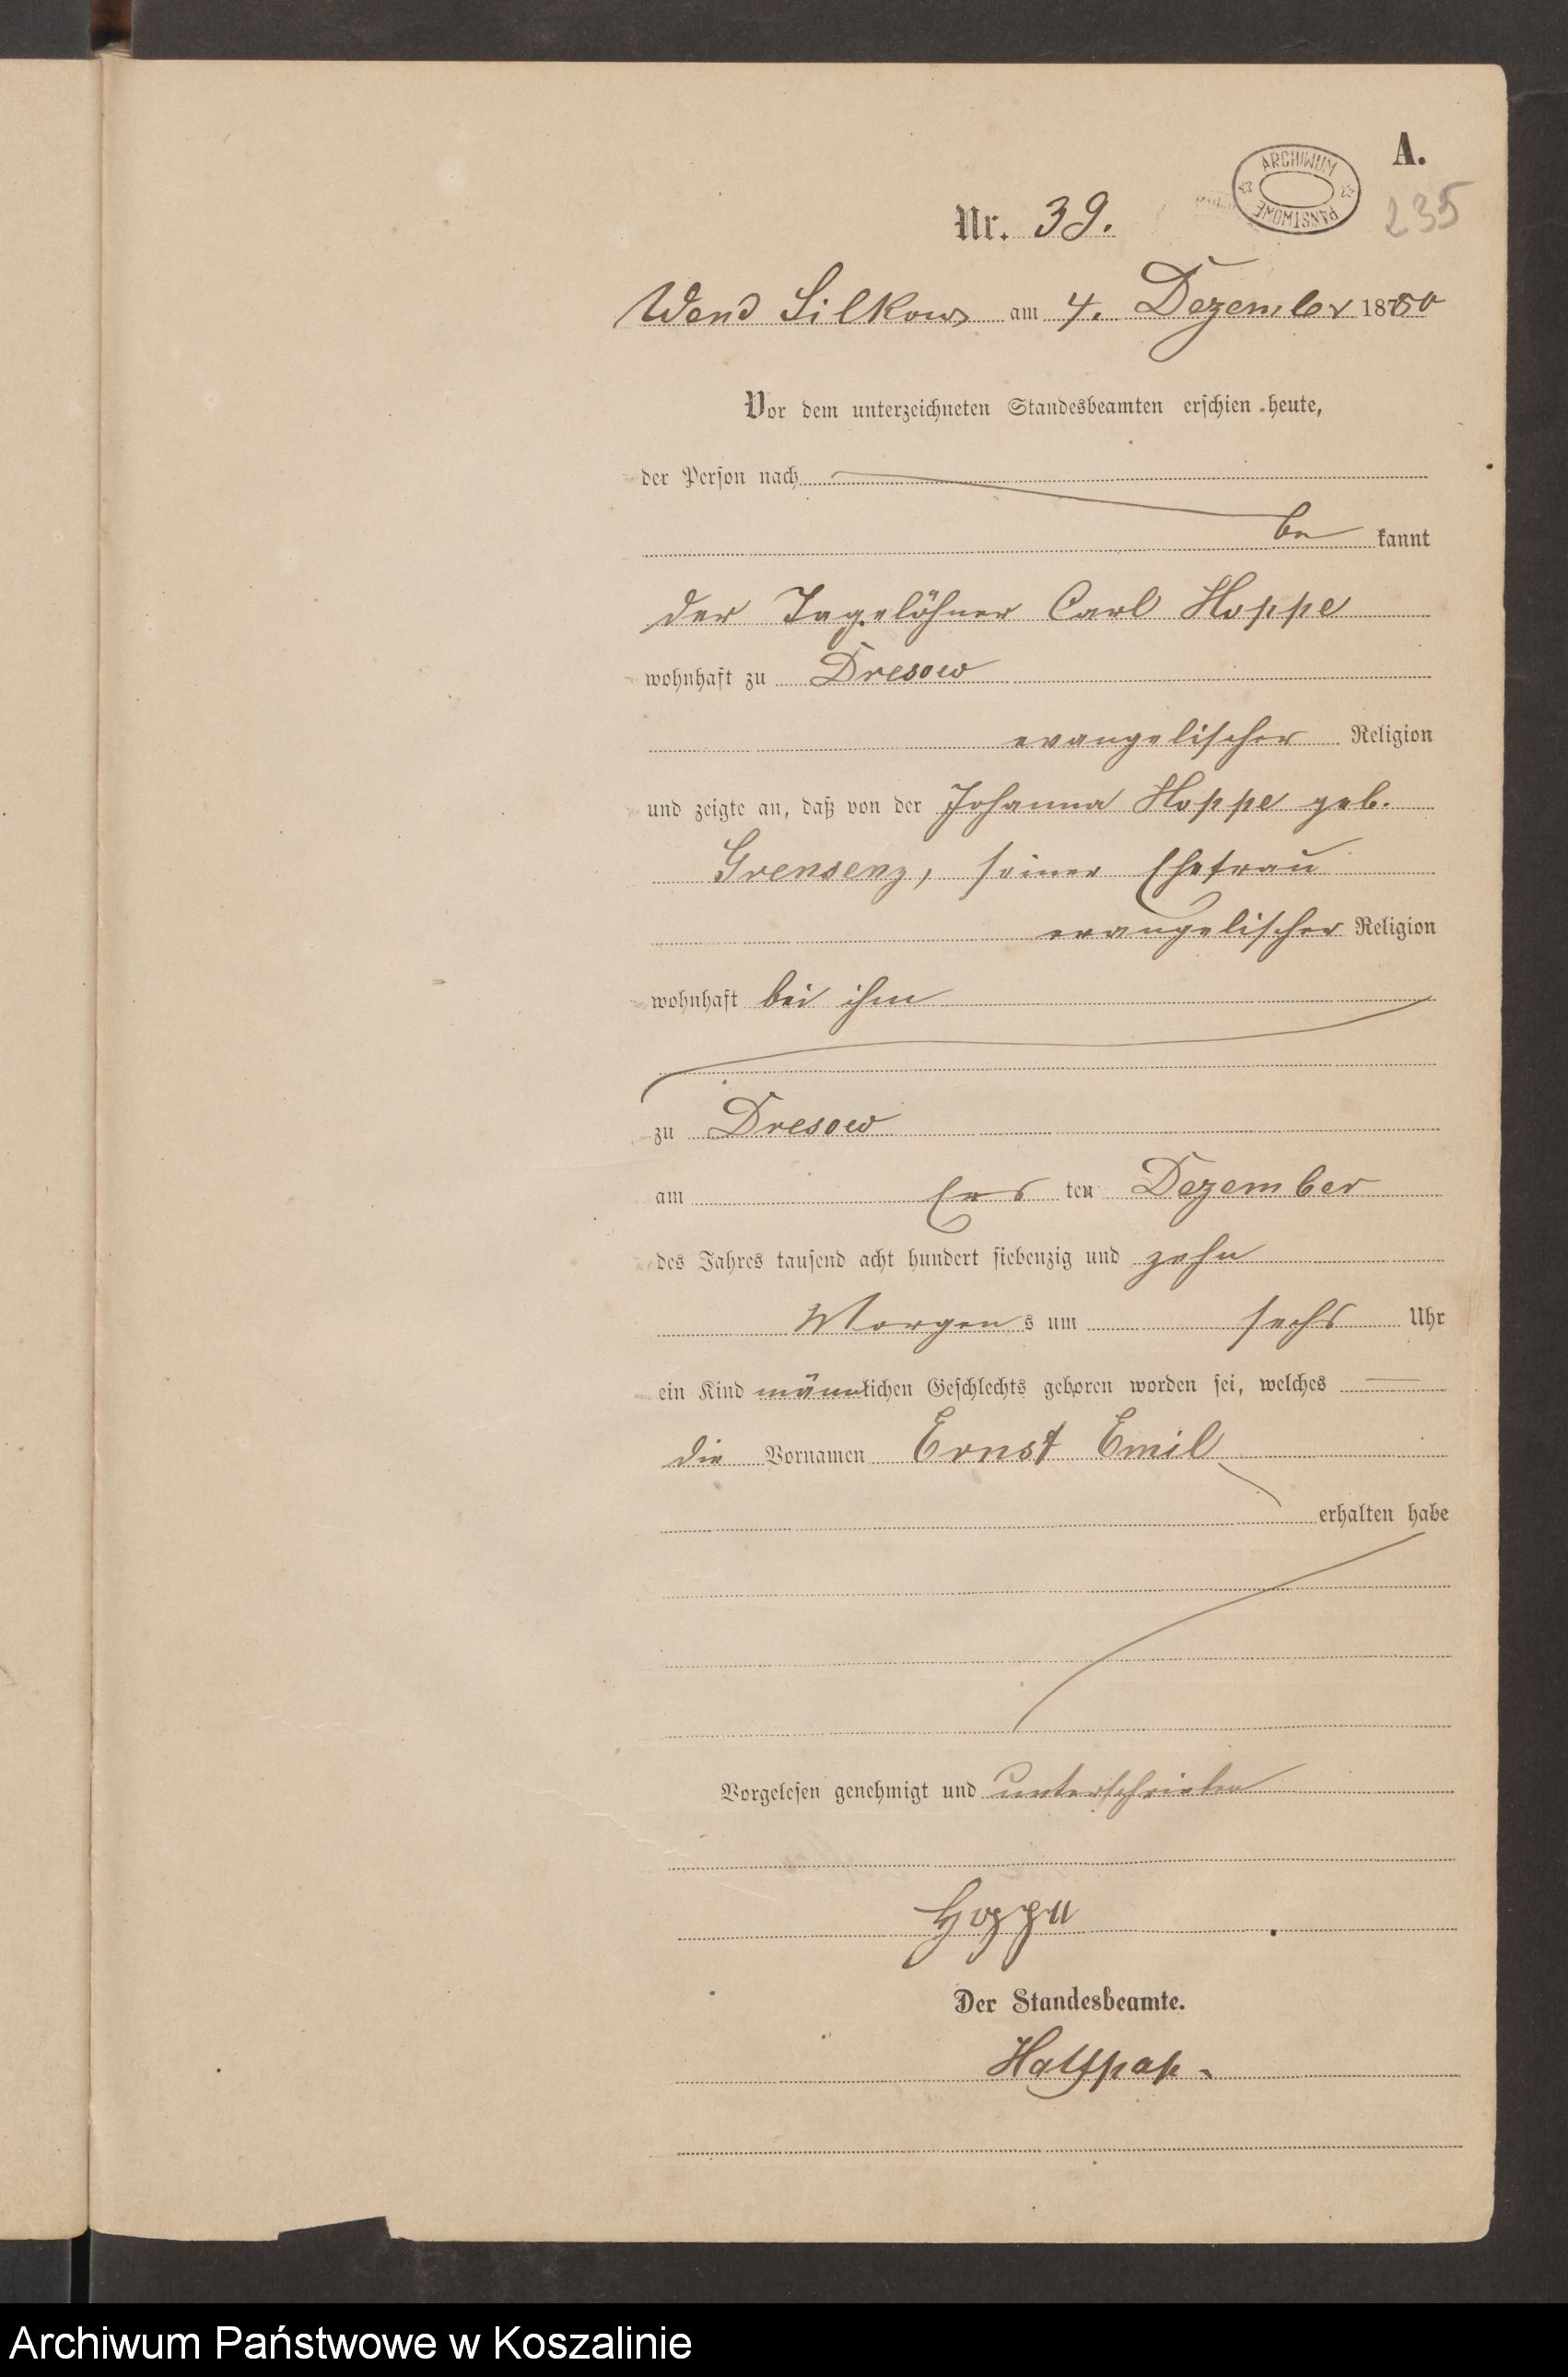 A.
ARCHIWUM PAŃSTWOWE
235
Nr. 39.
Wend Silkow am 4. Dezember 1880
Vor dem unterzeichneten Standesbeamten erschien heute,
der Person nach
be kannt
der Tagelöhner Carl Hoppe
wohnhaft zu Dresow
evangelischer Religion
und zeigte an, daß von der Johanna Hoppe geb.
Grensenz, seiner Ehefrau
evangelischer Religion
wohnhaft bei ihm
zu Dresow
am ten Dezember
des Jahres tausend acht hundert siebenzig und zehn
Morgens um sechs Uhr
ein Kind männlichen Geschlechts geboren worden sei, welches
die Vornamen Ernst Emil
erhalten habe
Vorgelesen genehmigt und unterschrieben
Hoppe
Der Standesbeamte.
Halfpap.
Archiwum Państwowe w Koszalinie